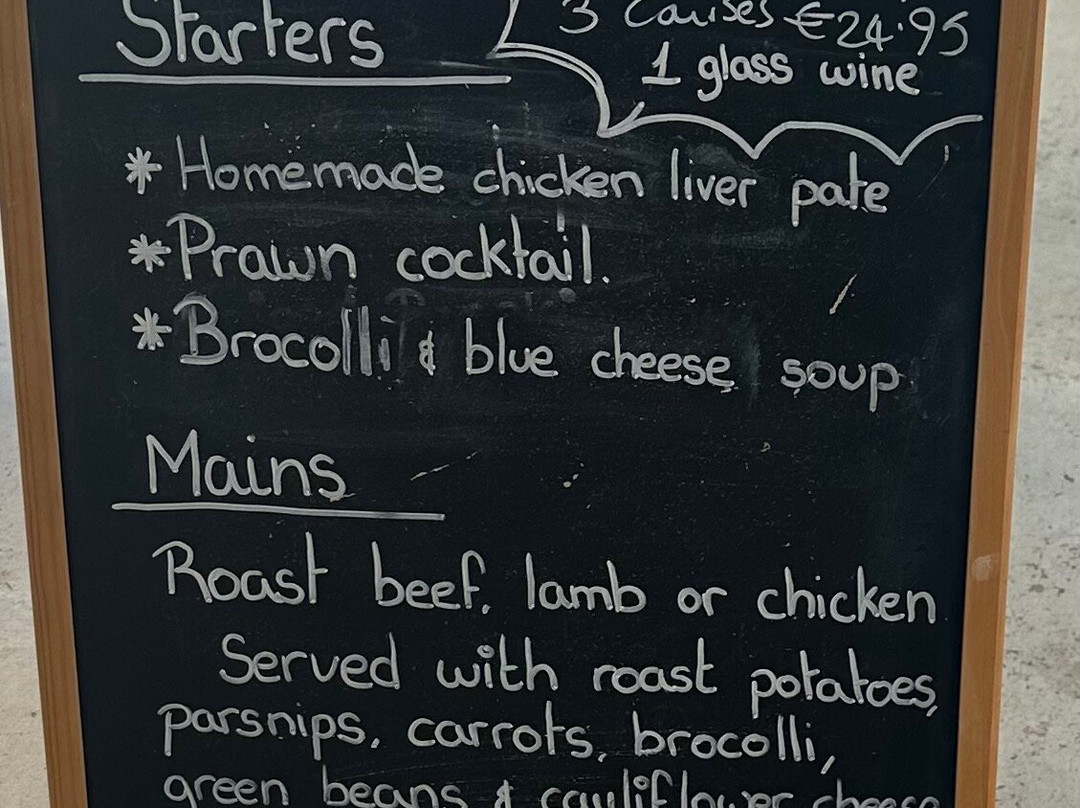 3 Courses €24.95
Starters
1 glass wine
* Homemade chicken liver pate
* Prawn cocktail.
* Brocolli & blue cheese soup
Mains
Roast beef, lamb or chicken
Served with roast potatoes,
parsnips, carrots, brocolli,
green beans & cauliflower cheese